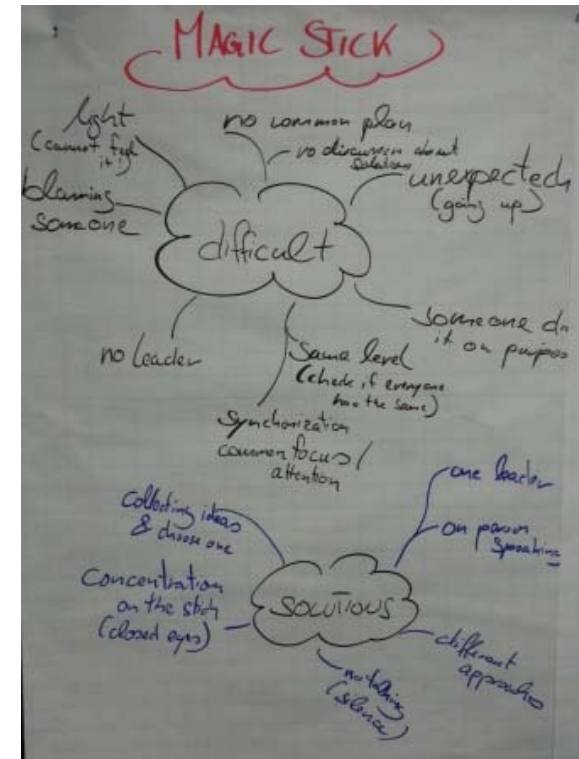 MAGIC STICK
light
(cannot feel
it!)
no common plan
no discussion about
solutions
unexpected
(going up)
blaming
someone
difficult
someone do
it on purpose
no leader
Same level
(check if everyone
has the same)
Synchronization
common focus/
attention
one leader
collecting ideas
& choose one
on person
speaking
Concentration
on the stick
(closed eyes)
SOLUTIONS
different
approaches
no talking
(silence)